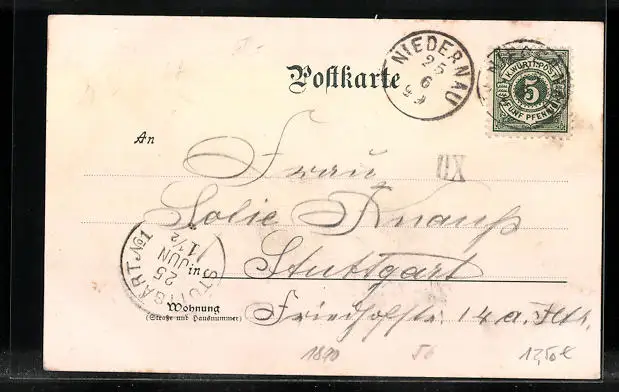 Postkarte
NIEDERNAU
25
6
99
K.WÜRTT.POST
5
FÜNF PFENNIG
An
Frau
XU
Knauß
in Stuttgart
STUTTGART No 1
25
JUN
1 ½
Wohnung
(Straße und Hausnummer)
Friedhofstr. 14 a.
1890
12,50